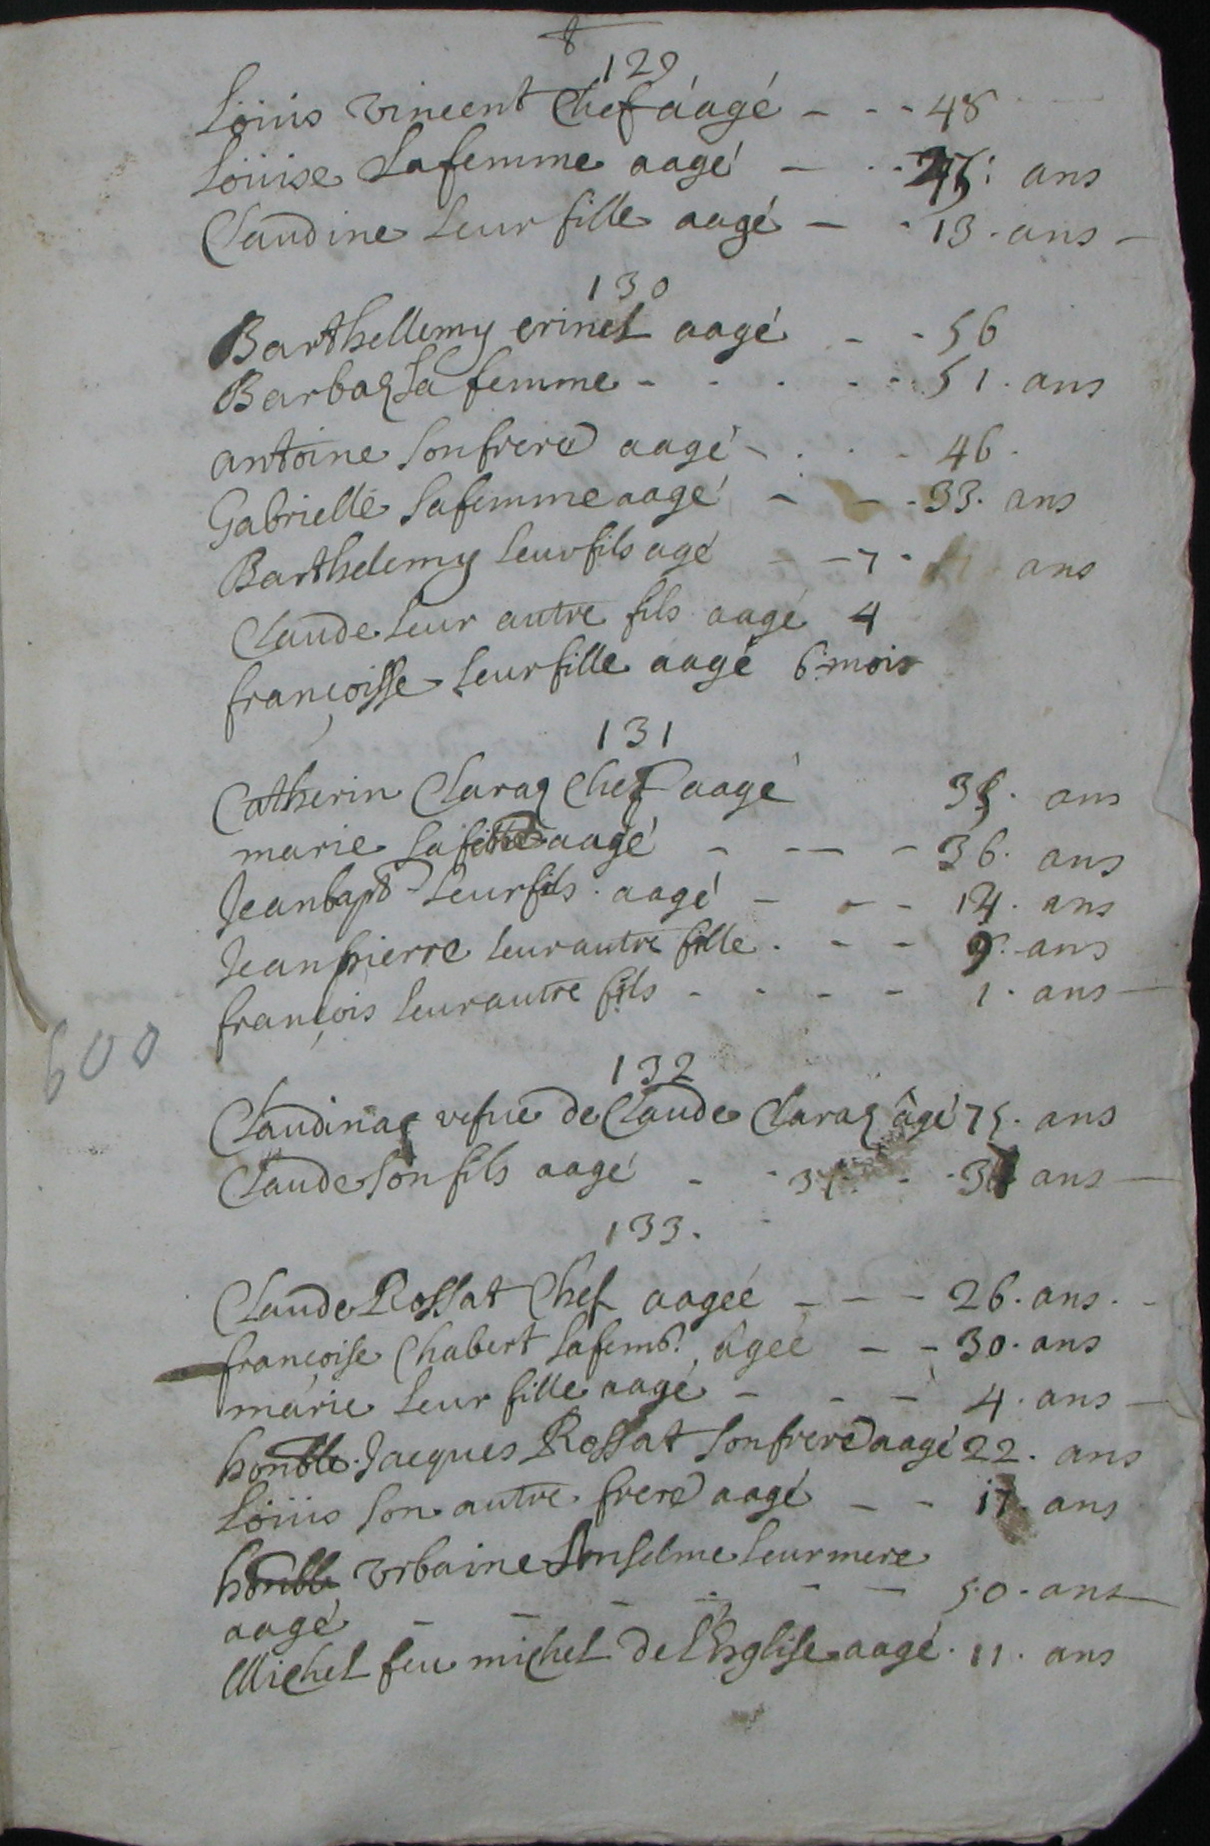 129
Löuis vincent Chef áagé - - - 48
Löuise Lafemme aagé - - - ans
Claudine Leur fille aagé - - 13 . ans -
130
Barthellemy crinel aagé - - 56
Barbaz La femme - - . - - 51 . ans
antoine Sonfrere aagé - . . - 46 .
Gabrielle Lafemme aagé - - - 33 . ans
Barthelemy Leurfils agé - - 7 - ans
Claude Leur autre fils aagé 4
françoisse Leurfille aagé 6 mois
131
Catherin Claraz Chef aagé 35 . ans
marie aagé - -- - 36 . ans
Jeanbapt Leurfils . aagé - - - 14 . ans
Jeanpierre Leurautre fille . - - 9 . ans
françois Leurautre fils - - - - 1 . ans -
600
132
Claudinaz vefue de Claude Claraz âgé 75 . ans
Claude Son fils aagé - - - - ans -
133 .
Claude Rossat Chef aageé - - - 26 . ans . -
françoise Chabert Lafem. âgeé - - 30 . ans
marie Leur fille aagé - - - 4 . ans -
honble . Jacques Rossat Sonfrere aagé 22 . ans
Löuis Son autre frere aagé - - 17 . ans
honble vrbaine Anselme Leurmere
aagé - - - - - - 50 . ans -
Michel feu michel de L'Eglise aagé . 11 . ans